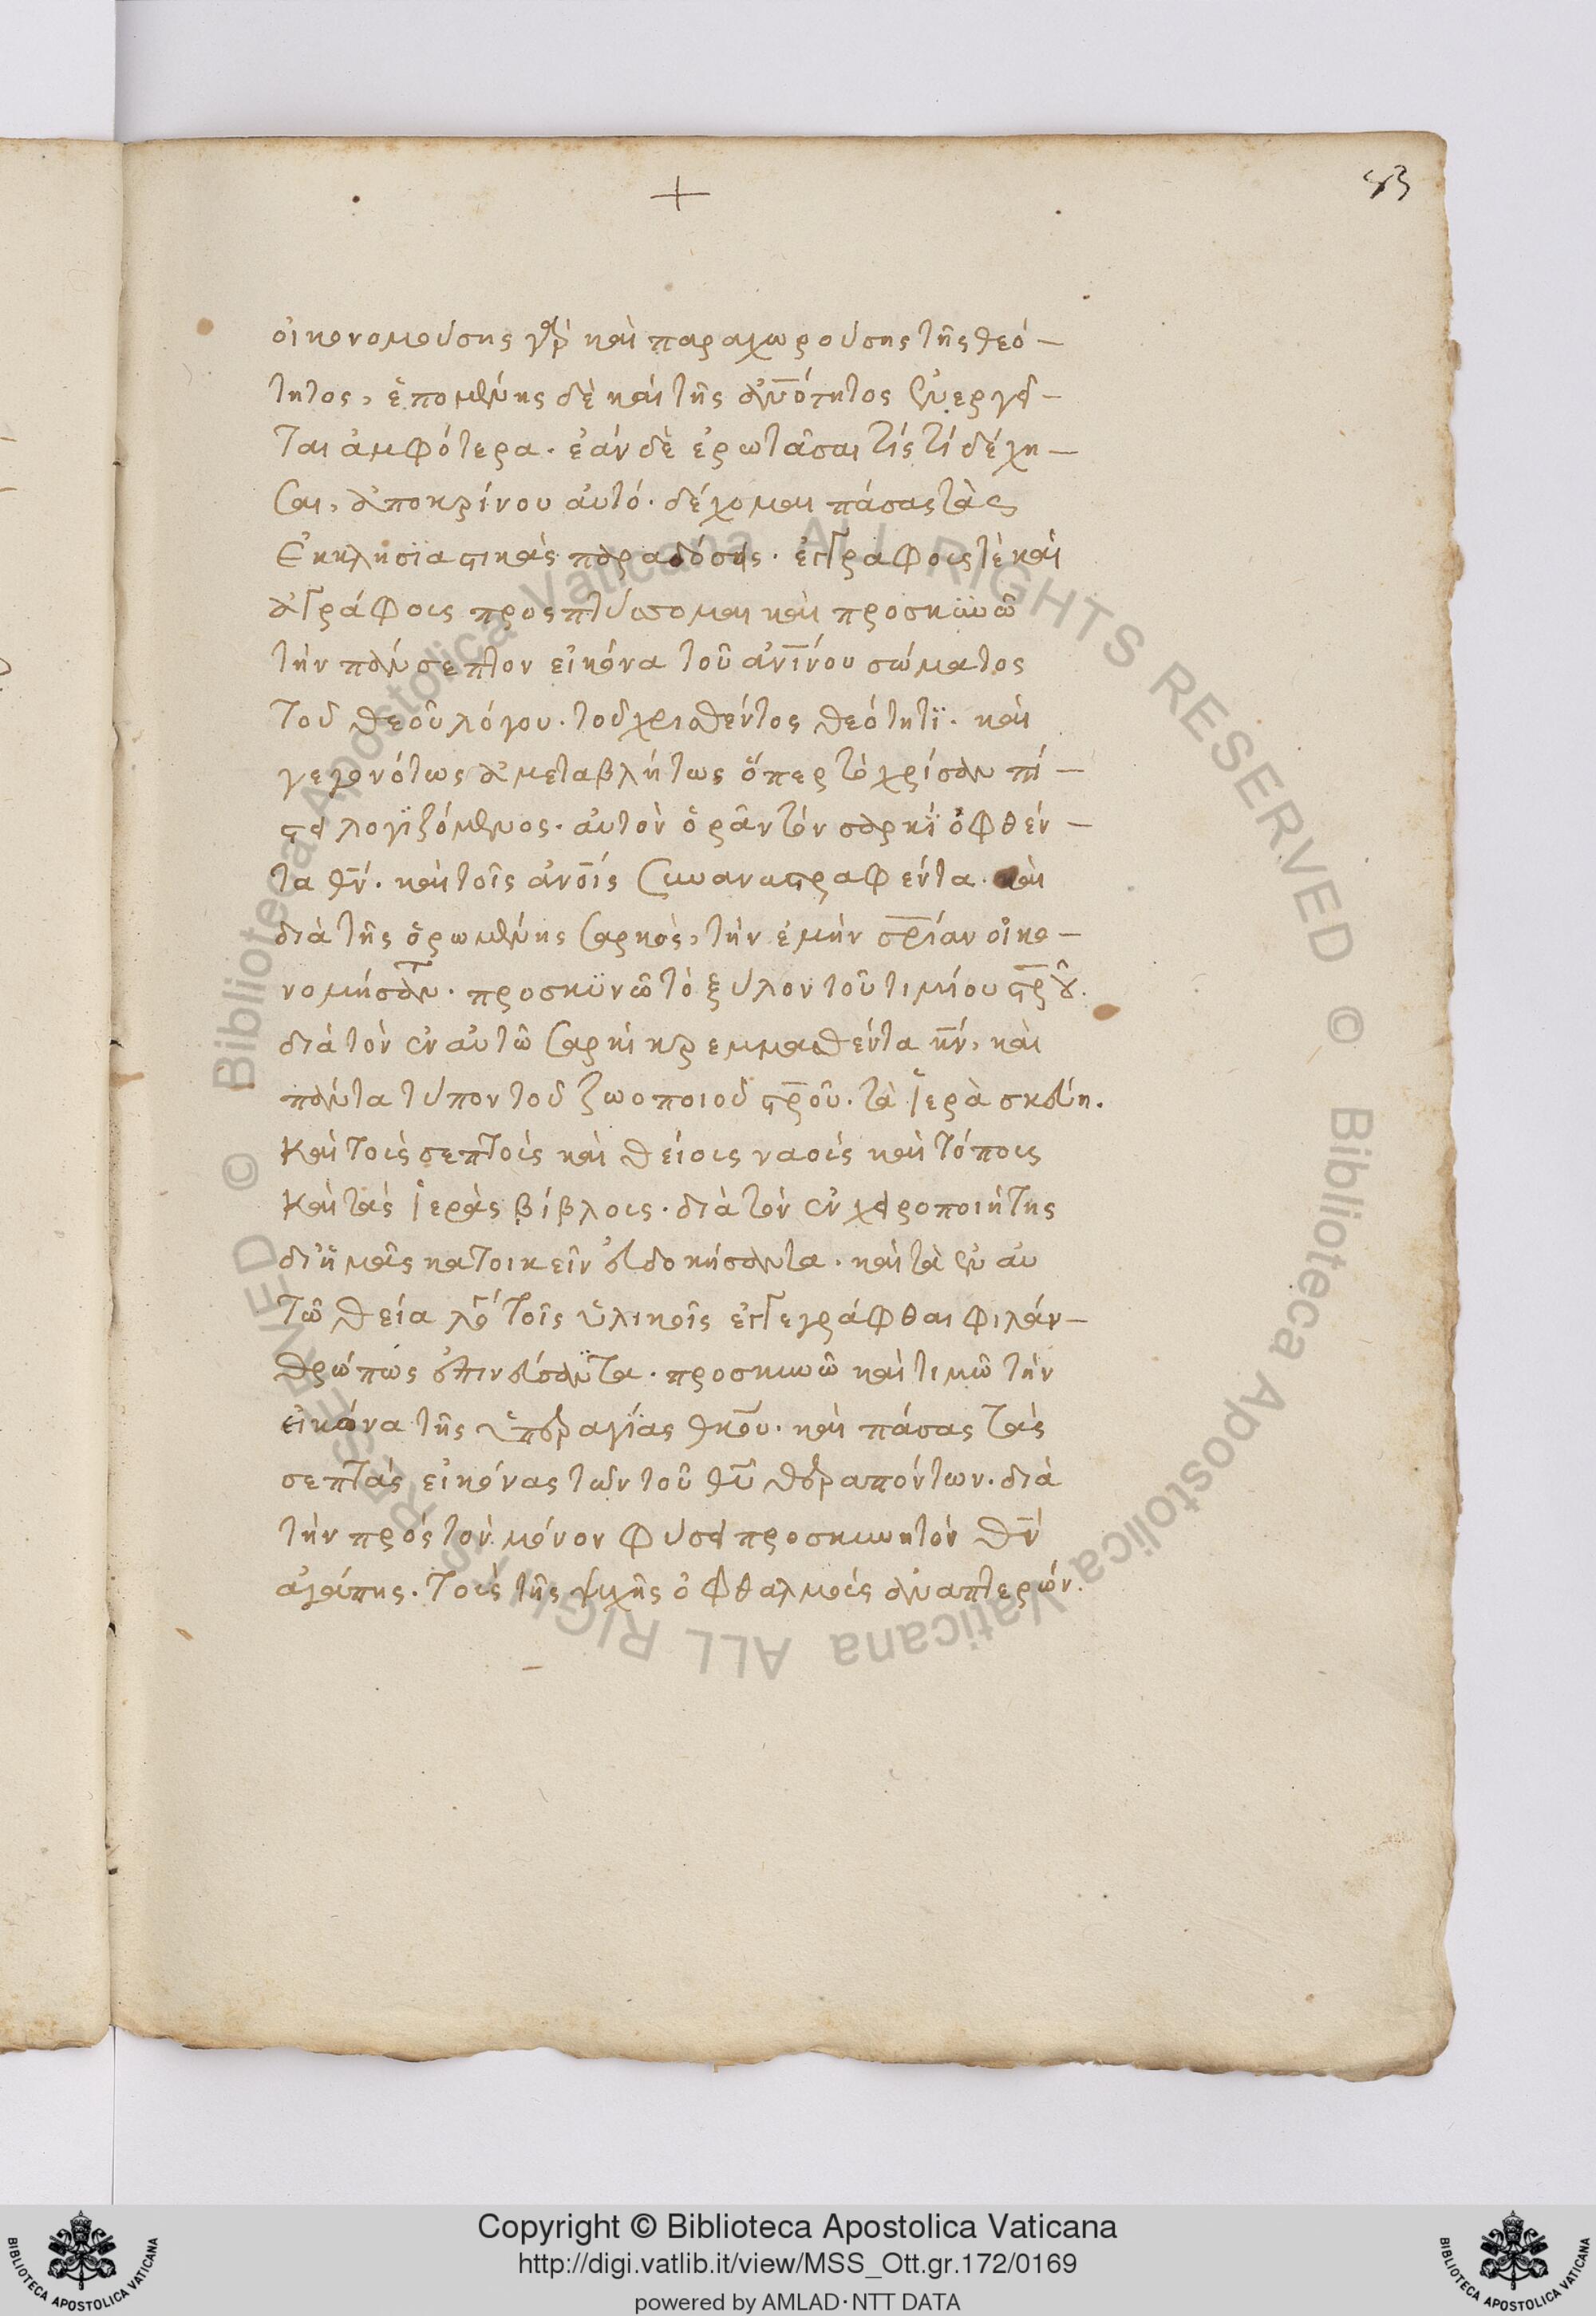 83
οἰκονομούσης γὰρ καὶ παραχωρούσης τῆς θεό-
τητος, ἑπομένης δὲ καὶ τῆς ἀνότητος ἐνεργεῖ-
ται ἀμφότερα. ἐὰν δὲ ἐρωτᾶσαι τίς τί δέχη-
σαι, ἀποκρίνου αὐτό. δέχομαι πάσας τὰς
Ἐκκλησϊαστικὰς παραδόσης. ἐγγράφοις τὲ καὶ
ἀγράφοις προσπτύσομαι καὶ προσκϋνῶ
τὴν πάνσεπτον εἰκόνα τοῦ ἀνίνου σώματος
τοῦ θεοῦ λόγου. τοῦ χρισθέντος θεότητϊ. καὶ
γεγονότως ἀμεταβλήτως ὅπερ τὸ χρίσαν πί-
στει λογϊζόμενος. αὐτὸν ὁρᾶν τὸν σαρκῒ ὀφθέν-
τα θν. καὶ τοῖς ἀνοις συναναστραφέντα. καὶ
διὰ τῆς ὁρωμένης σαρκὸς, τὴν ἐμὴν σρίαν οἰκο-
νομήσαντ. προσκϋνῶ τὸ ξύλον τοῦ τιμίου στρου.
διὰ τὸν ἐν αὐτῶ σαρκὶ κρεμμασθέντα κν, καὶ
πάντα τύπον τοῦ ζωοποιοῦ στροῦ. τὰ ἱερὰ σκεύη.
Καὶ τοῖς σεπτοῖς καὶ θείοις ναοῖς καὶ τόποις
Καὶ τὰς ἱερὰς βίβλοις. διὰ τὸν ἐν χειροποιήτης
δι ἡμᾶς κατοικεῖν εὐδοκήσαντα. καὶ τὰ ἐν αὐ
τῶ θεία λό τοῖς ὑλικοῖς ἐγγεγράφθαι φιλάν-
θρώπως ἐπινεύσαντα. προσκυνῶ καὶ τιμῶ τὴν
εἰκόνα τῆς ὑπεραγίας θκου. καὶ πάσας τὰς
σεπτάς εἰκόνας τῶν τοῦ θυ θεραπόντων. διὰ
τὴν πρὸς τὸν μόνον φύσει προσκυνητὸν θν
ἀγάπης. τοῖς τῆς ψυχῆς ὀφθαλμοῖς ἀναπτερῶν.
Copyright © Biblioteca Apostolica Vaticana
http://digi.vatlib.it/view/MSS_Ott.gr.172/0169
powered by AMLAD·NTT DATA
BIBLIOTECA APOSTOLICA VATICANA
BIBLIOTECA APOSTOLICA VATICANA
© Biblioteca Apostolica Vaticana ALL RIGHTS RESERVED © Biblioteca Apostolica Vaticana ALL RIGHTS RESERVED